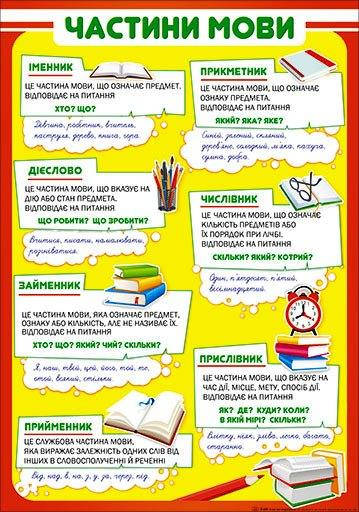 ЧАСТИНИ МОВИ
ІМЕННИК
ЦЕ ЧАСТИНА МОВИ, ЩО ОЗНАЧАЄ ПРЕДМЕТ.
ВІДПОВІДАЄ НА ПИТАННЯ
ХТО? ЩО?
Дівчина, робітник, вчитель,
каструля, дерево, книга, гора.
ПРИКМЕТНИК
ЦЕ ЧАСТИНА МОВИ, ЩО ОЗНАЧАЄ
ОЗНАКУ ПРЕДМЕТА.
ВІДПОВІДАЄ НА ПИТАННЯ
ЯКИЙ? ЯКА? ЯКЕ?
Синій, зелений, скляний,
дерев'яне, солодкий, м'яка, пахуча,
сумна, добра.
ДІЄСЛОВО
ЦЕ ЧАСТИНА МОВИ, ЩО ВКАЗУЄ НА
ДІЮ АБО СТАН ПРЕДМЕТА.
ВІДПОВІДАЄ НА ПИТАННЯ
ЩО РОБИТИ? ЩО ЗРОБИТИ?
Вчитися, писати, намалювати,
розчинятися.
ЧИСЛІВНИК
ЦЕ ЧАСТИНА МОВИ, ЩО ОЗНАЧАЄ
КІЛЬКІСТЬ ПРЕДМЕТІВ АБО
ЇХ ПОРЯДОК ПРИ ЛІЧБІ.
ВІДПОВІДАЄ НА ПИТАННЯ
СКІЛЬКИ? ЯКИЙ? КОТРИЙ?
Один, п'ятдесят, п'ятий,
вісімнадцятий.
ЗАЙМЕННИК
ЦЕ ЧАСТИНА МОВИ, ЯКА ОЗНАЧАЄ ПРЕДМЕТ,
ОЗНАКУ АБО КІЛЬКІСТЬ, АЛЕ НЕ НАЗИВАЄ ЇХ.
ВІДПОВІДАЄ НА ПИТАННЯ
ХТО? ЩО? ЯКИЙ? ЧИЙ? СКІЛЬКИ?
Я, наш, твій, цей, його, той, те,
отой, всякий, стільки.
ПРИСЛІВНИК
ЦЕ ЧАСТИНА МОВИ, ЩО ВКАЗУЄ НА
ЧАС ДІЇ, МІСЦЕ, МЕТУ, СПОСІБ ДІЇ.
ВІДПОВІДАЄ НА ПИТАННЯ
ЯК? ДЕ? КУДИ? КОЛИ?
В ЯКІЙ МІРІ? СКІЛЬКИ?
Влітку, ніяк, зліва, легко, багато,
старанно.
ПРИЙМЕННИК
ЦЕ СЛУЖБОВА ЧАСТИНА МОВИ,
ЯКА ВИРАЖАЄ ЗАЛЕЖНІСТЬ ОДНИХ СЛІВ ВІД
ІНШИХ В СЛОВОСПОЛУЧЕННІ Й РЕЧЕННІ
Від, над, в, на, з, у, за, через, під.